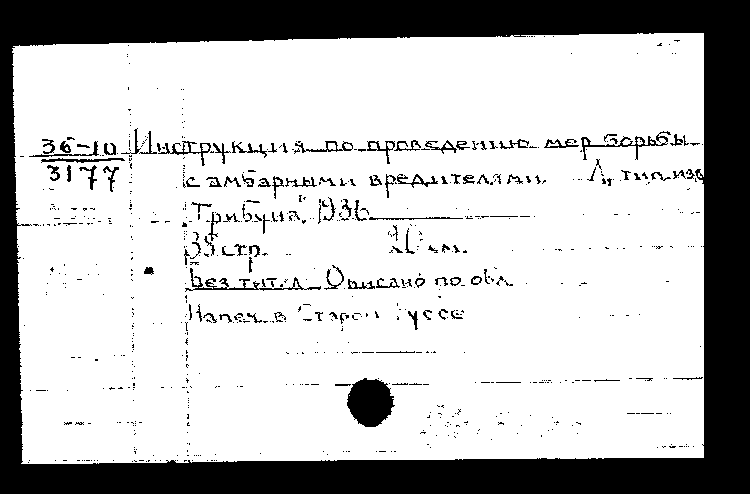 36-10 Инструкция по проведению мер борьбы
3177
с амбарными вредителями. Л, тип. изд
Трибуна", 1936
35 стр. 20 см.
Без тит. л. Описано по обл
Напеч. в Старой Руссе